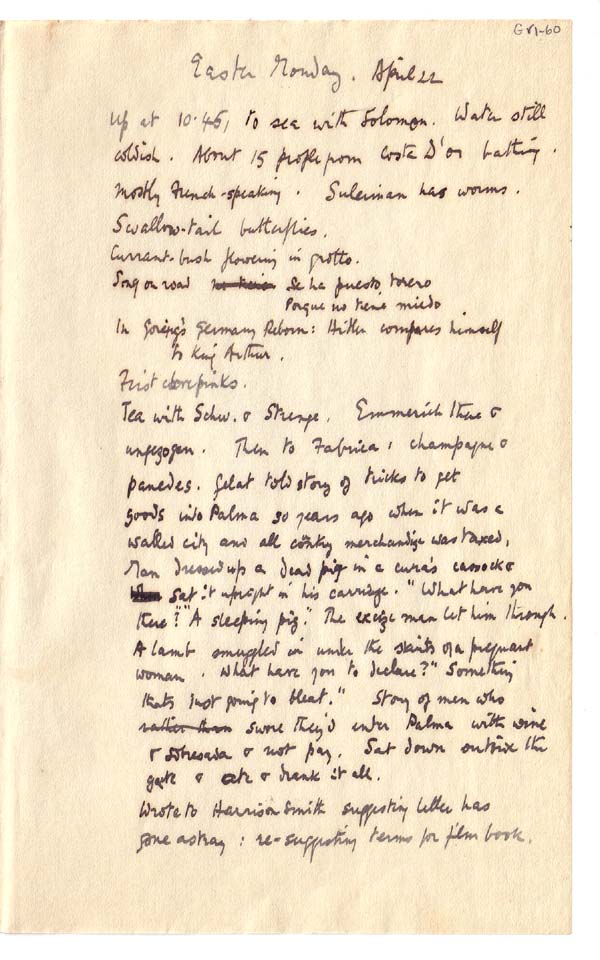 GVI-60
Easter Monday. April 22
Up at 10.45, to sea with Solomon. Water still
coldish. About 15 people from Costa D'or bathing.
Mostly French-speaking. Suleiman has worms.
Swallow-tail butterflies.
Currant-bush flowering in grotto.
Song on road Se ha puesto torero
Porque no tiene miedo
In Goering's Germany Reborn: Hitler compares himself
to King Arthur.
First clovepinks.
Tea with Schw. & Strenge. Emmerich there &
ungezogen. Then to Fabrica: champagne &
panedes. Gelat told story of tricks to get
goods into Palma 30 years ago when it was a
walled city and all country merchandize was taxed,
Man dressed up a dead pig in a cura's cassock &
sat it upright in his carriage. "What have you
there?" "A sleeping pig." The excise man let him through.
A lamb smuggled in under the skirts of a pregnant
woman. What have you to declare?" "Something
thats just going to bleat." Story of men who
rather than swore they'd enter Palma with wine
& sobresada & not pay. Sat down outside the
gate & ate & drank it all.
Wrote to Harrison Smith suggesting letter has
gone astray: re-suggesting terms for film book.